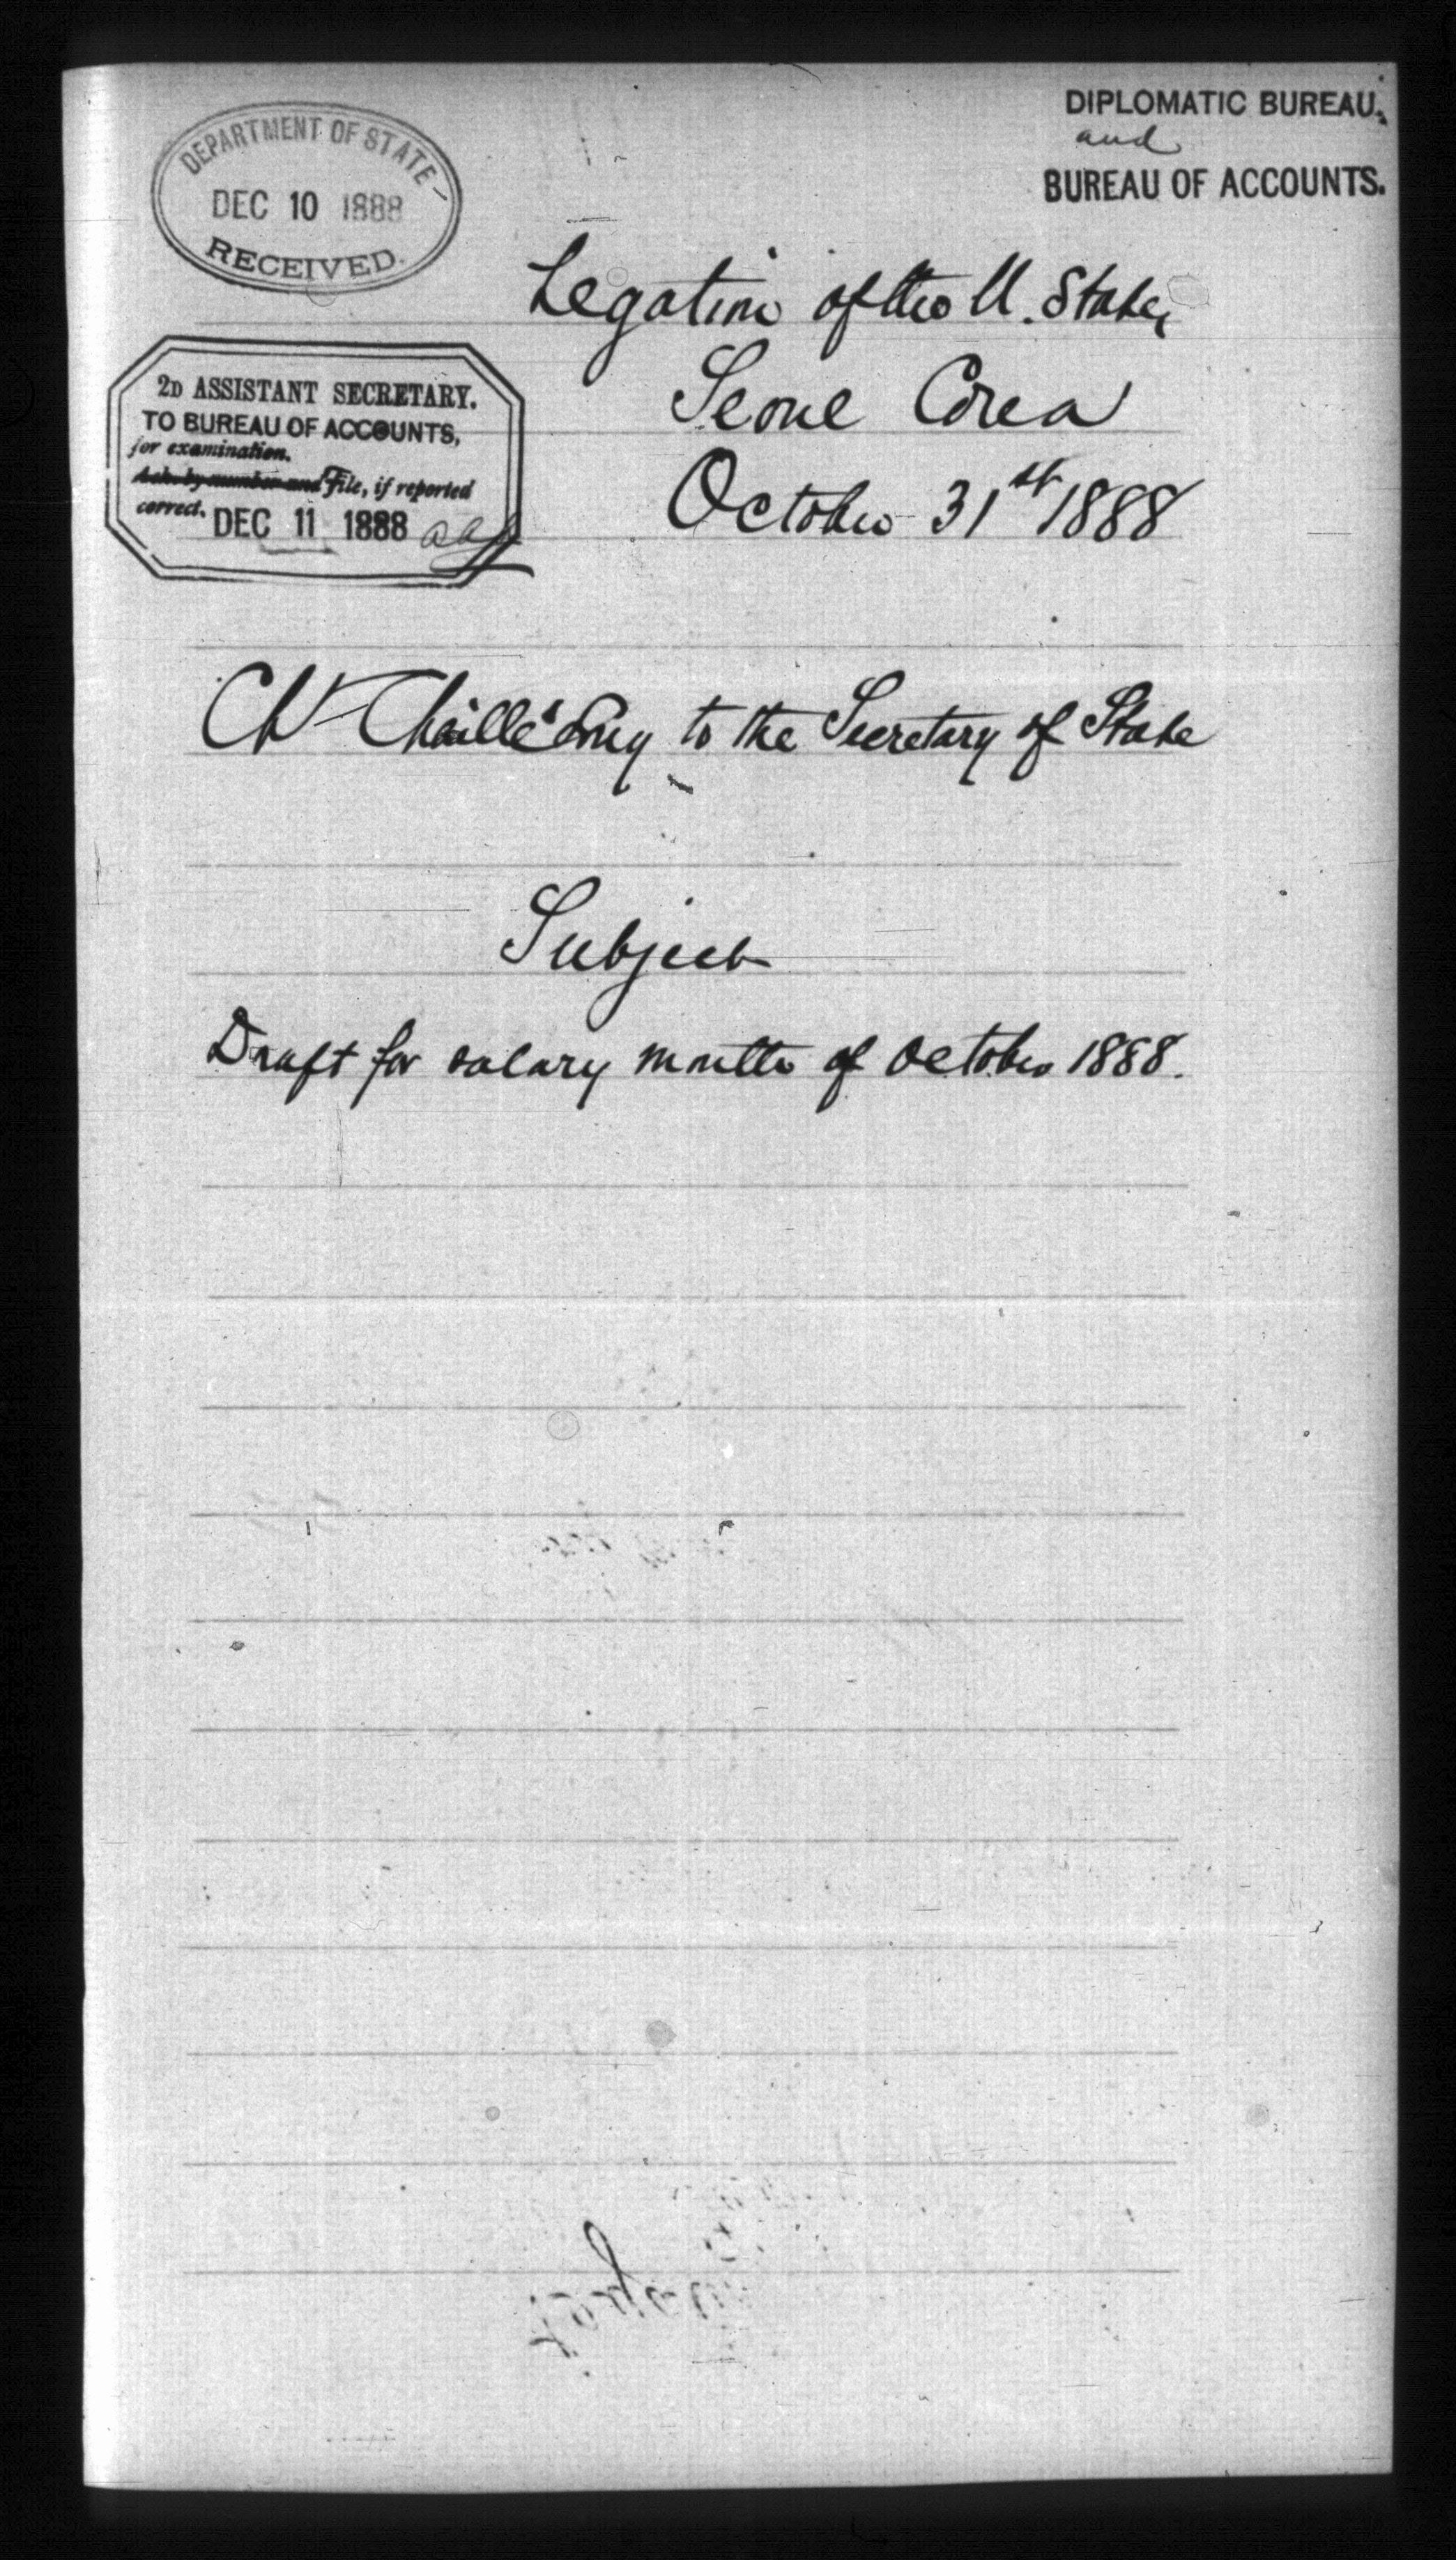 DEPARTMENT OF STATE
DEC 10 1888
RECEIVED.
DIPLOMATIC BUREAU.
and
BUREAU OF ACCOUNTS.
Legation of the U. States
Seoul Corea
October 31st 1888
2D ASSISTANT SECRETARY.
TO BUREAU OF ACCOUNTS,
for examination.
Ack. by number and File, if reported
correct.
DEC 11 1888
Ch Chaillé Long to the Secretary of State
Subject
Draft for salary month of October 1888.